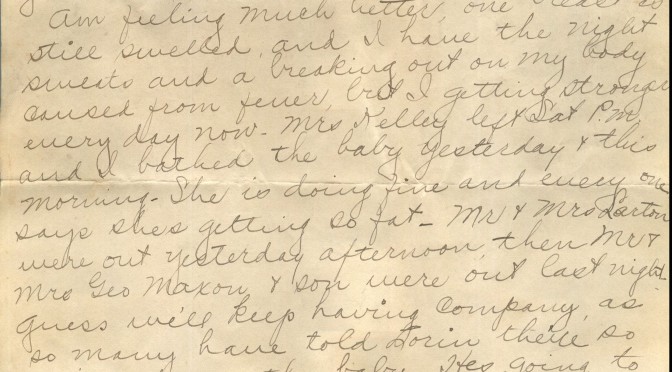 Am feeling much better, one breast is
still swelled, and I have the night
sweats and a breaking out on my body
caused from fever, but I getting stronger
every day now - Mrs Kelley left Sat P.M.
and I bathed the baby yesterday & this
morning - She is doing fine and every one
says she's getting so fat - Mr & Mrs Larton
were out yesterday afternoon, then Mr &
Mrs Geo Maxon & son were out last night -
guess we'll keep having company, as
so many have told Lorin they're so
the baby. Hes going to